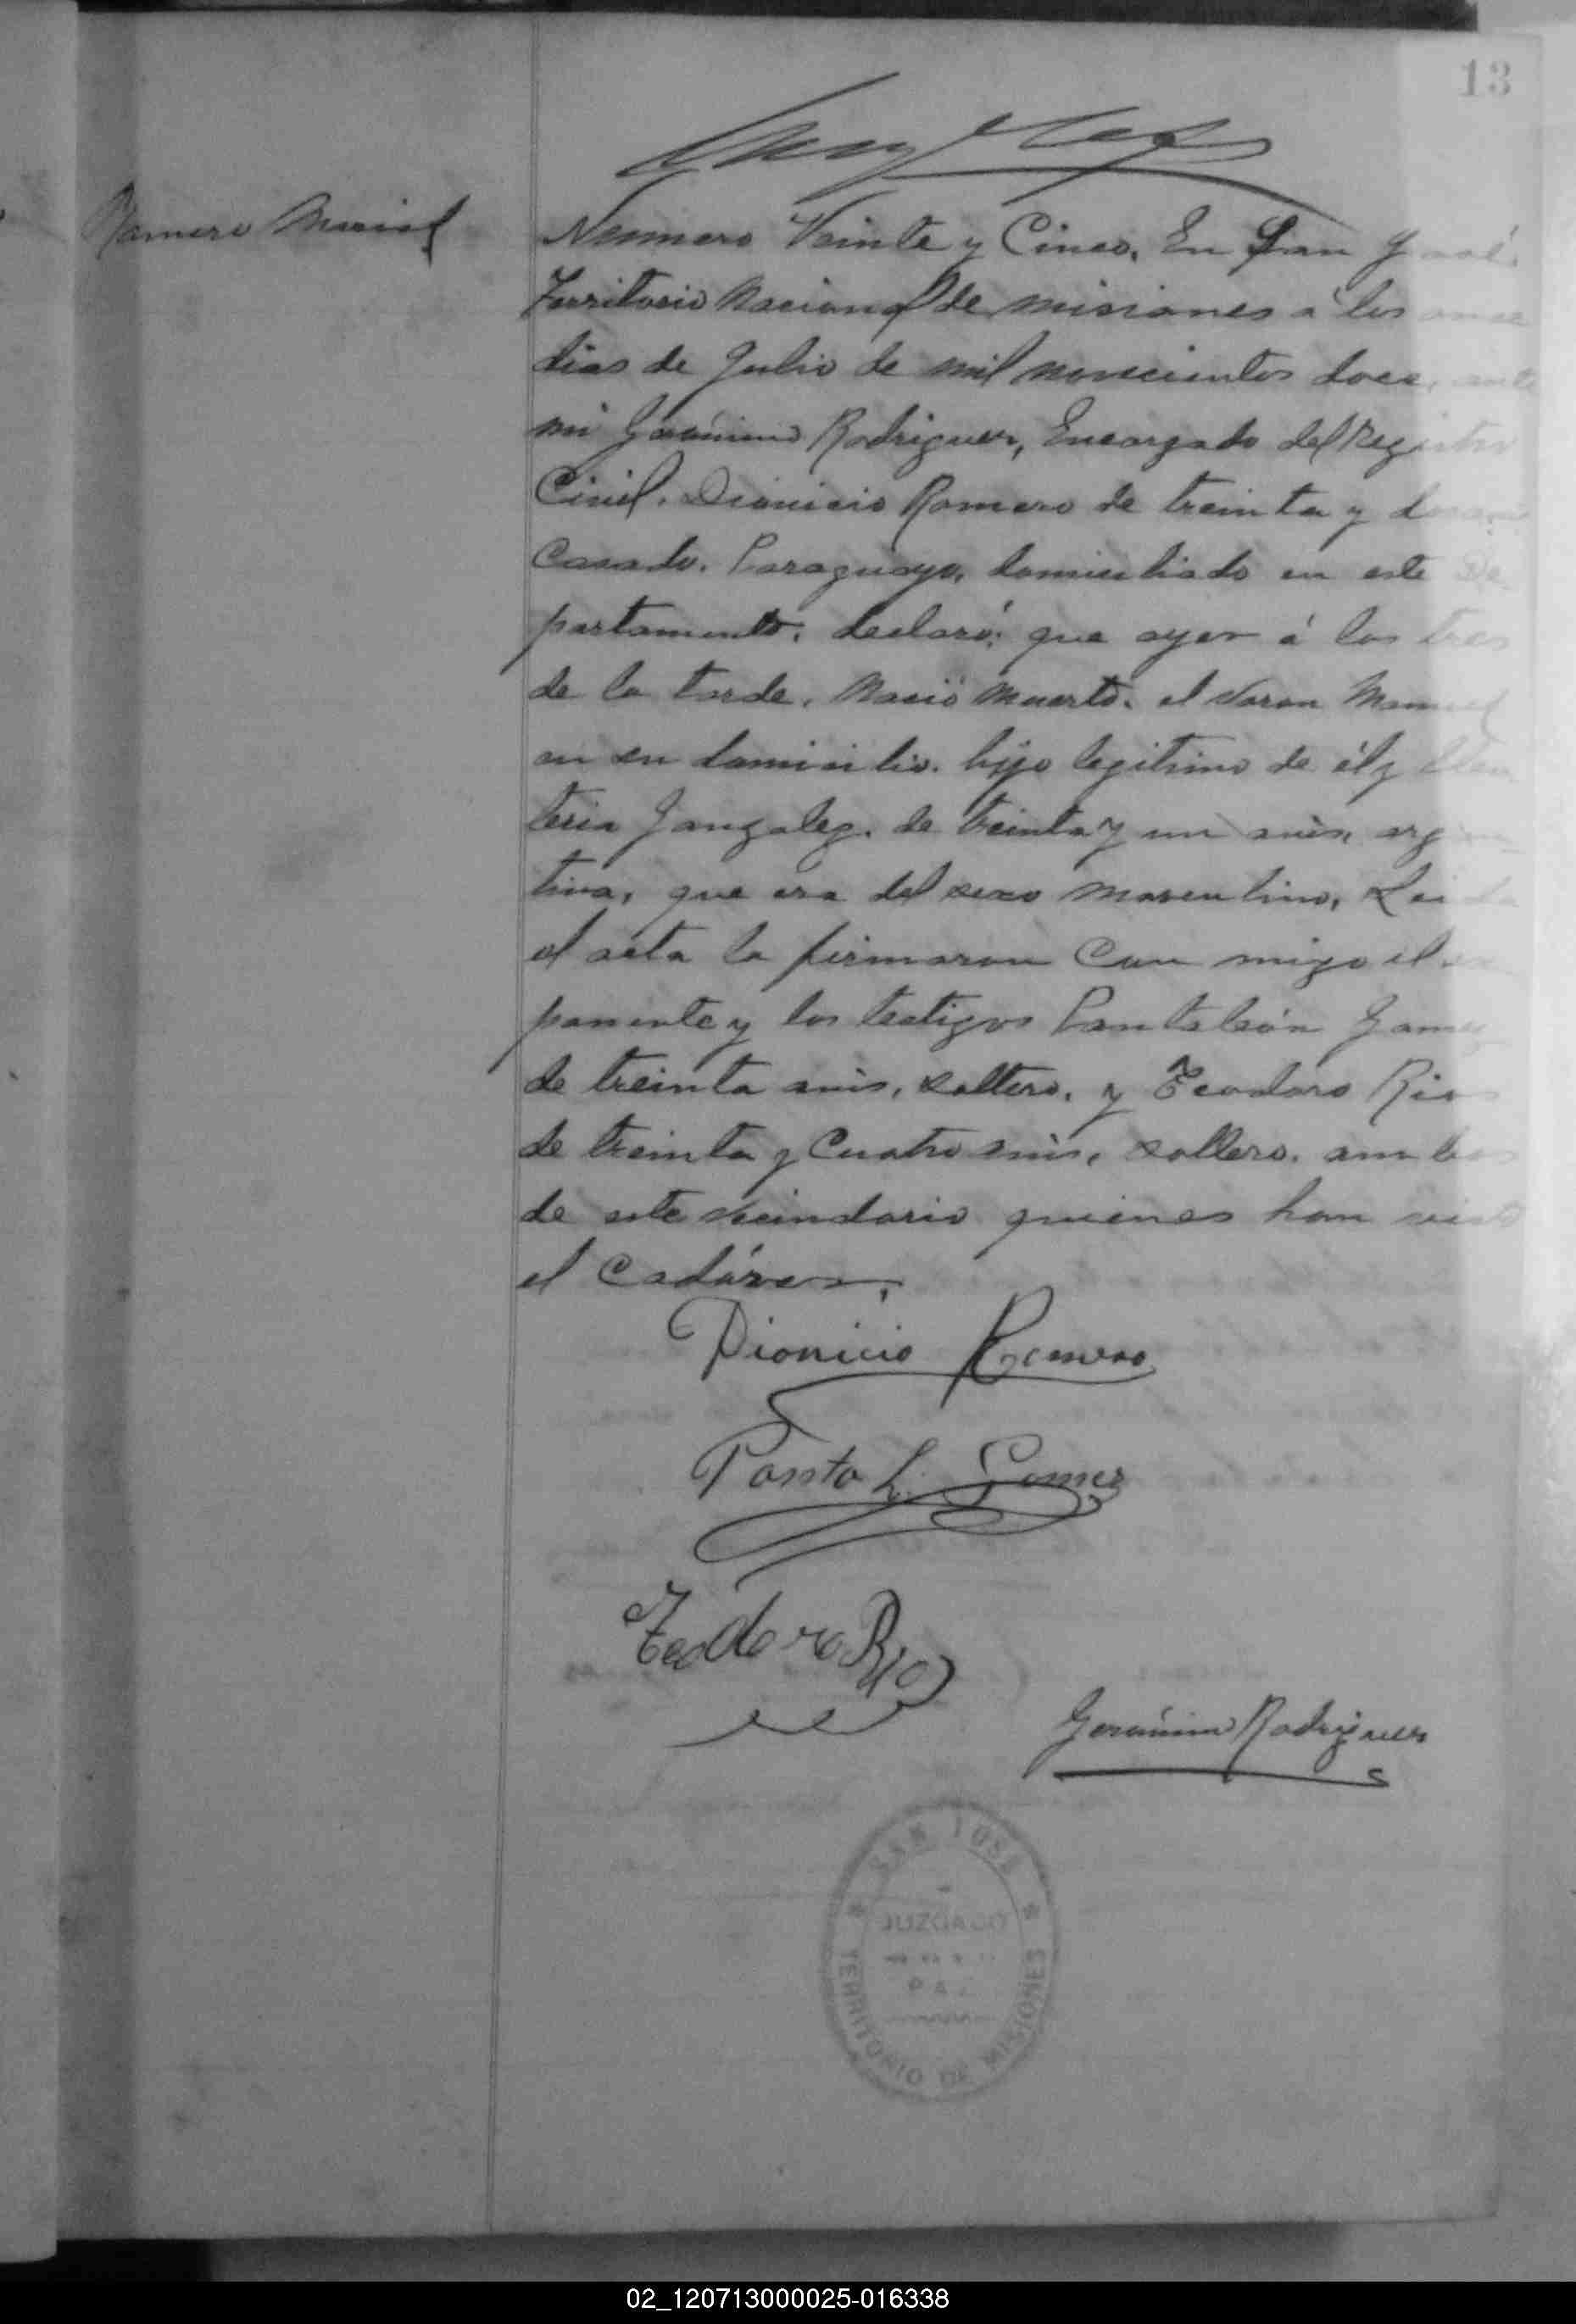 13
Romero Manuel
Numero Veinte y Cinco, En San José
Territorio Nacional de misiones á los once
dias de Julio de mil novecientos doce, ante
mi Gerónimo Rodriguez, Encargado del Registro
Civil. Dionicio Romero de treinta y dos años
Casado. Paraguayo, domiciliado en este De
partamento. declaró: que ayer á las tres
de la tarde, Nació muerto. el Varon Manuel
en su domicilio. hijo legitimo de él y
teria Gonzalez. de treinta y un años, argen
tina, que era del sexo masculino, Leida
el acta la firmaron Con migo el ex
ponente y los testigos Pantaleón Gomez
de treinta años, soltero, y Teodoro Rios
de treinta y Cuatro años, soltero. ambos
de este vecindario quienes han visto
el Cadáver.
Dionicio Romero
Panta L. Gomes
Teodoro Rios
Gerónimo Rodriguez
SAN JOSÉ
JUZGADO
DE
PAZ
TERRITORIO DE MISIONES
02_120713000025-016338